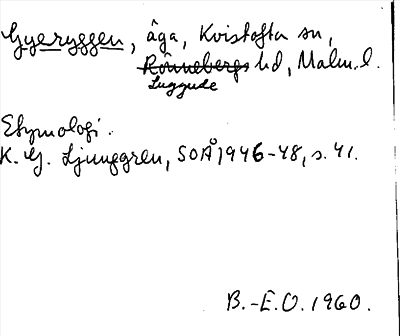 Gyeryggen, åga, Kvistofta sn,
Rönnebergs hd, Malm. l.
Luggude
Etymologi.
K. G. Ljunggren, SOÅ 1946-48, s. 41.
B.-E.O. 1960.